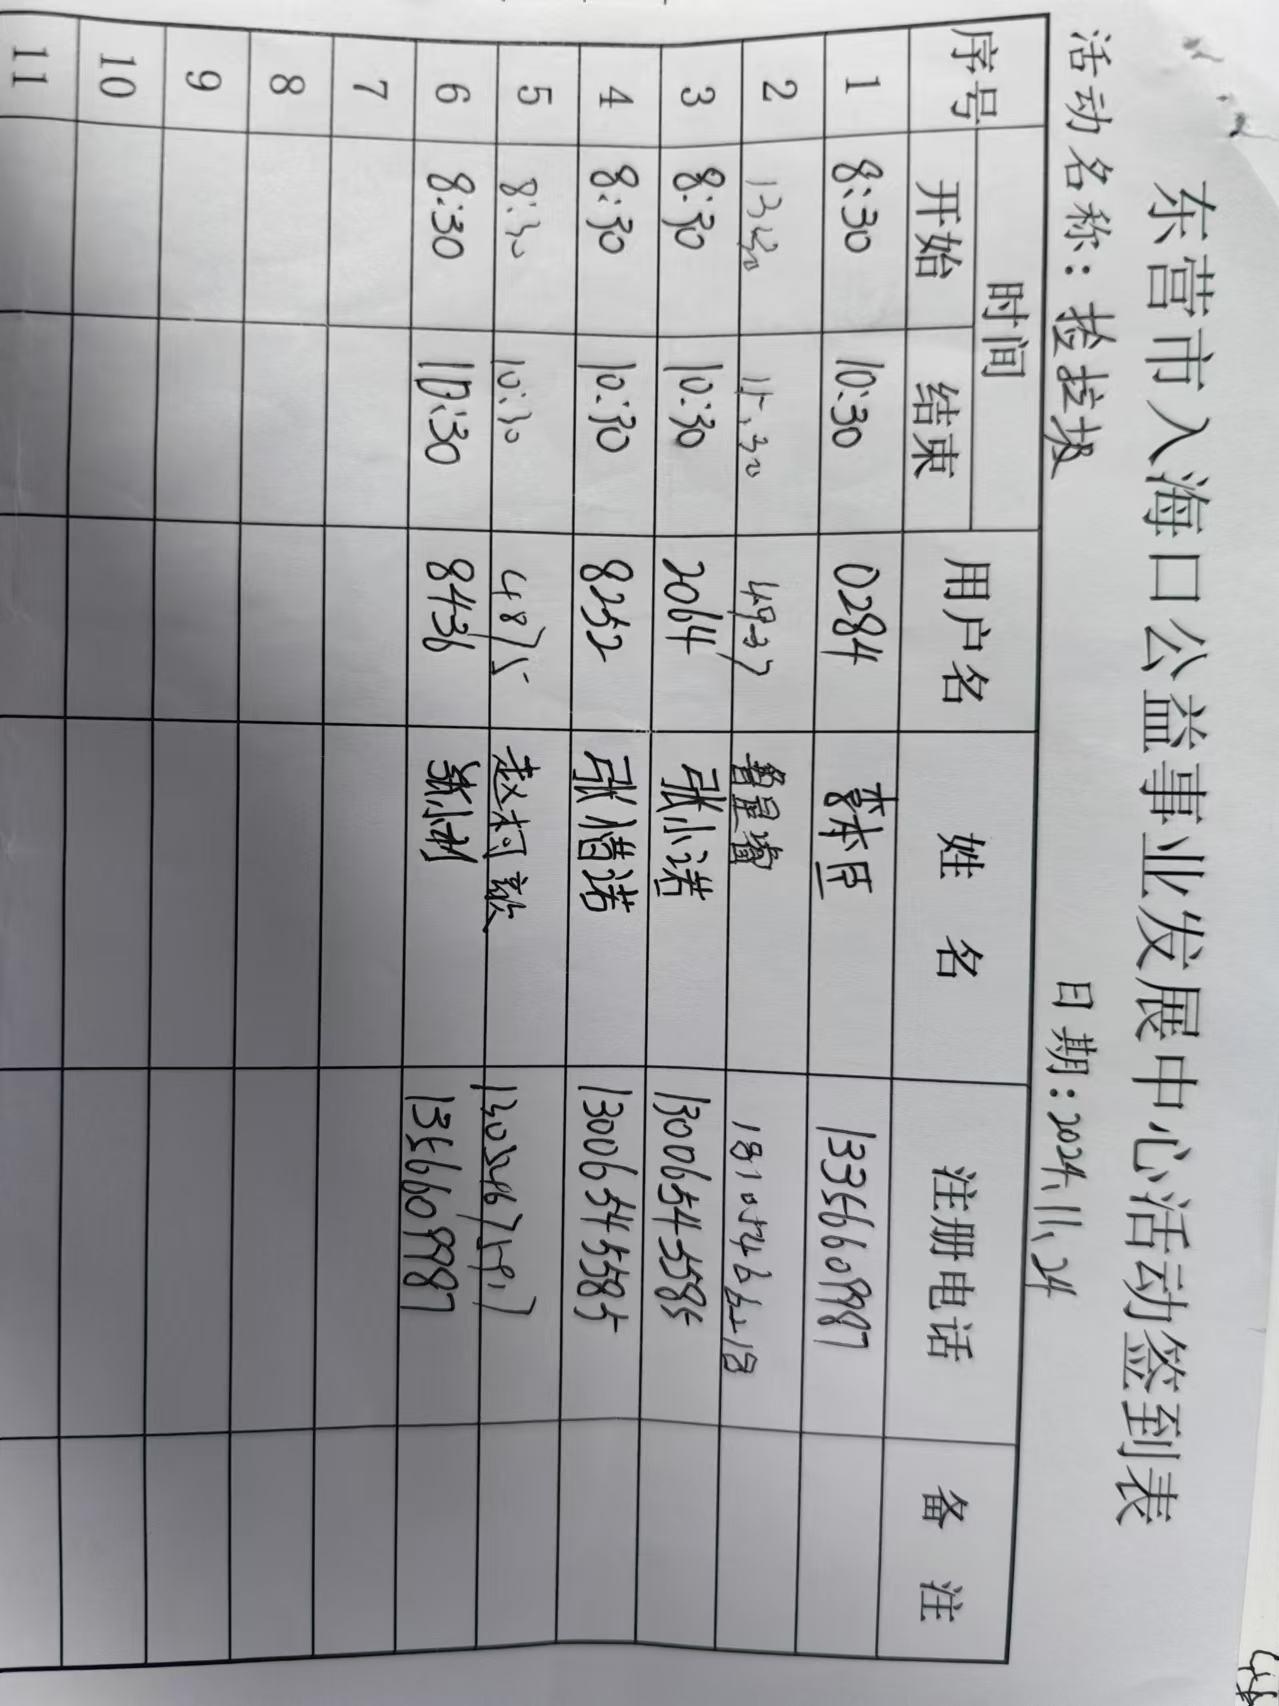 东营市入海口公益事业发展中心活动签到表
活动名称：捡垃圾 日期：2024.11.24
序号 时间 用户名 姓名 注册电话 备注
开始 结束
1 8:30 10:30 0284 李本臣 13356609987
2 13:30 15:30 4937 18105466218
3 8:30 10:30 2064 张小诺 13006545585
4 8:30 10:30 8252 张惜诺 13006545585
5 8:30 10:30 4875 赵柯歆
6 8:30 10:30 8436 13566609987
7
8
9
10
11